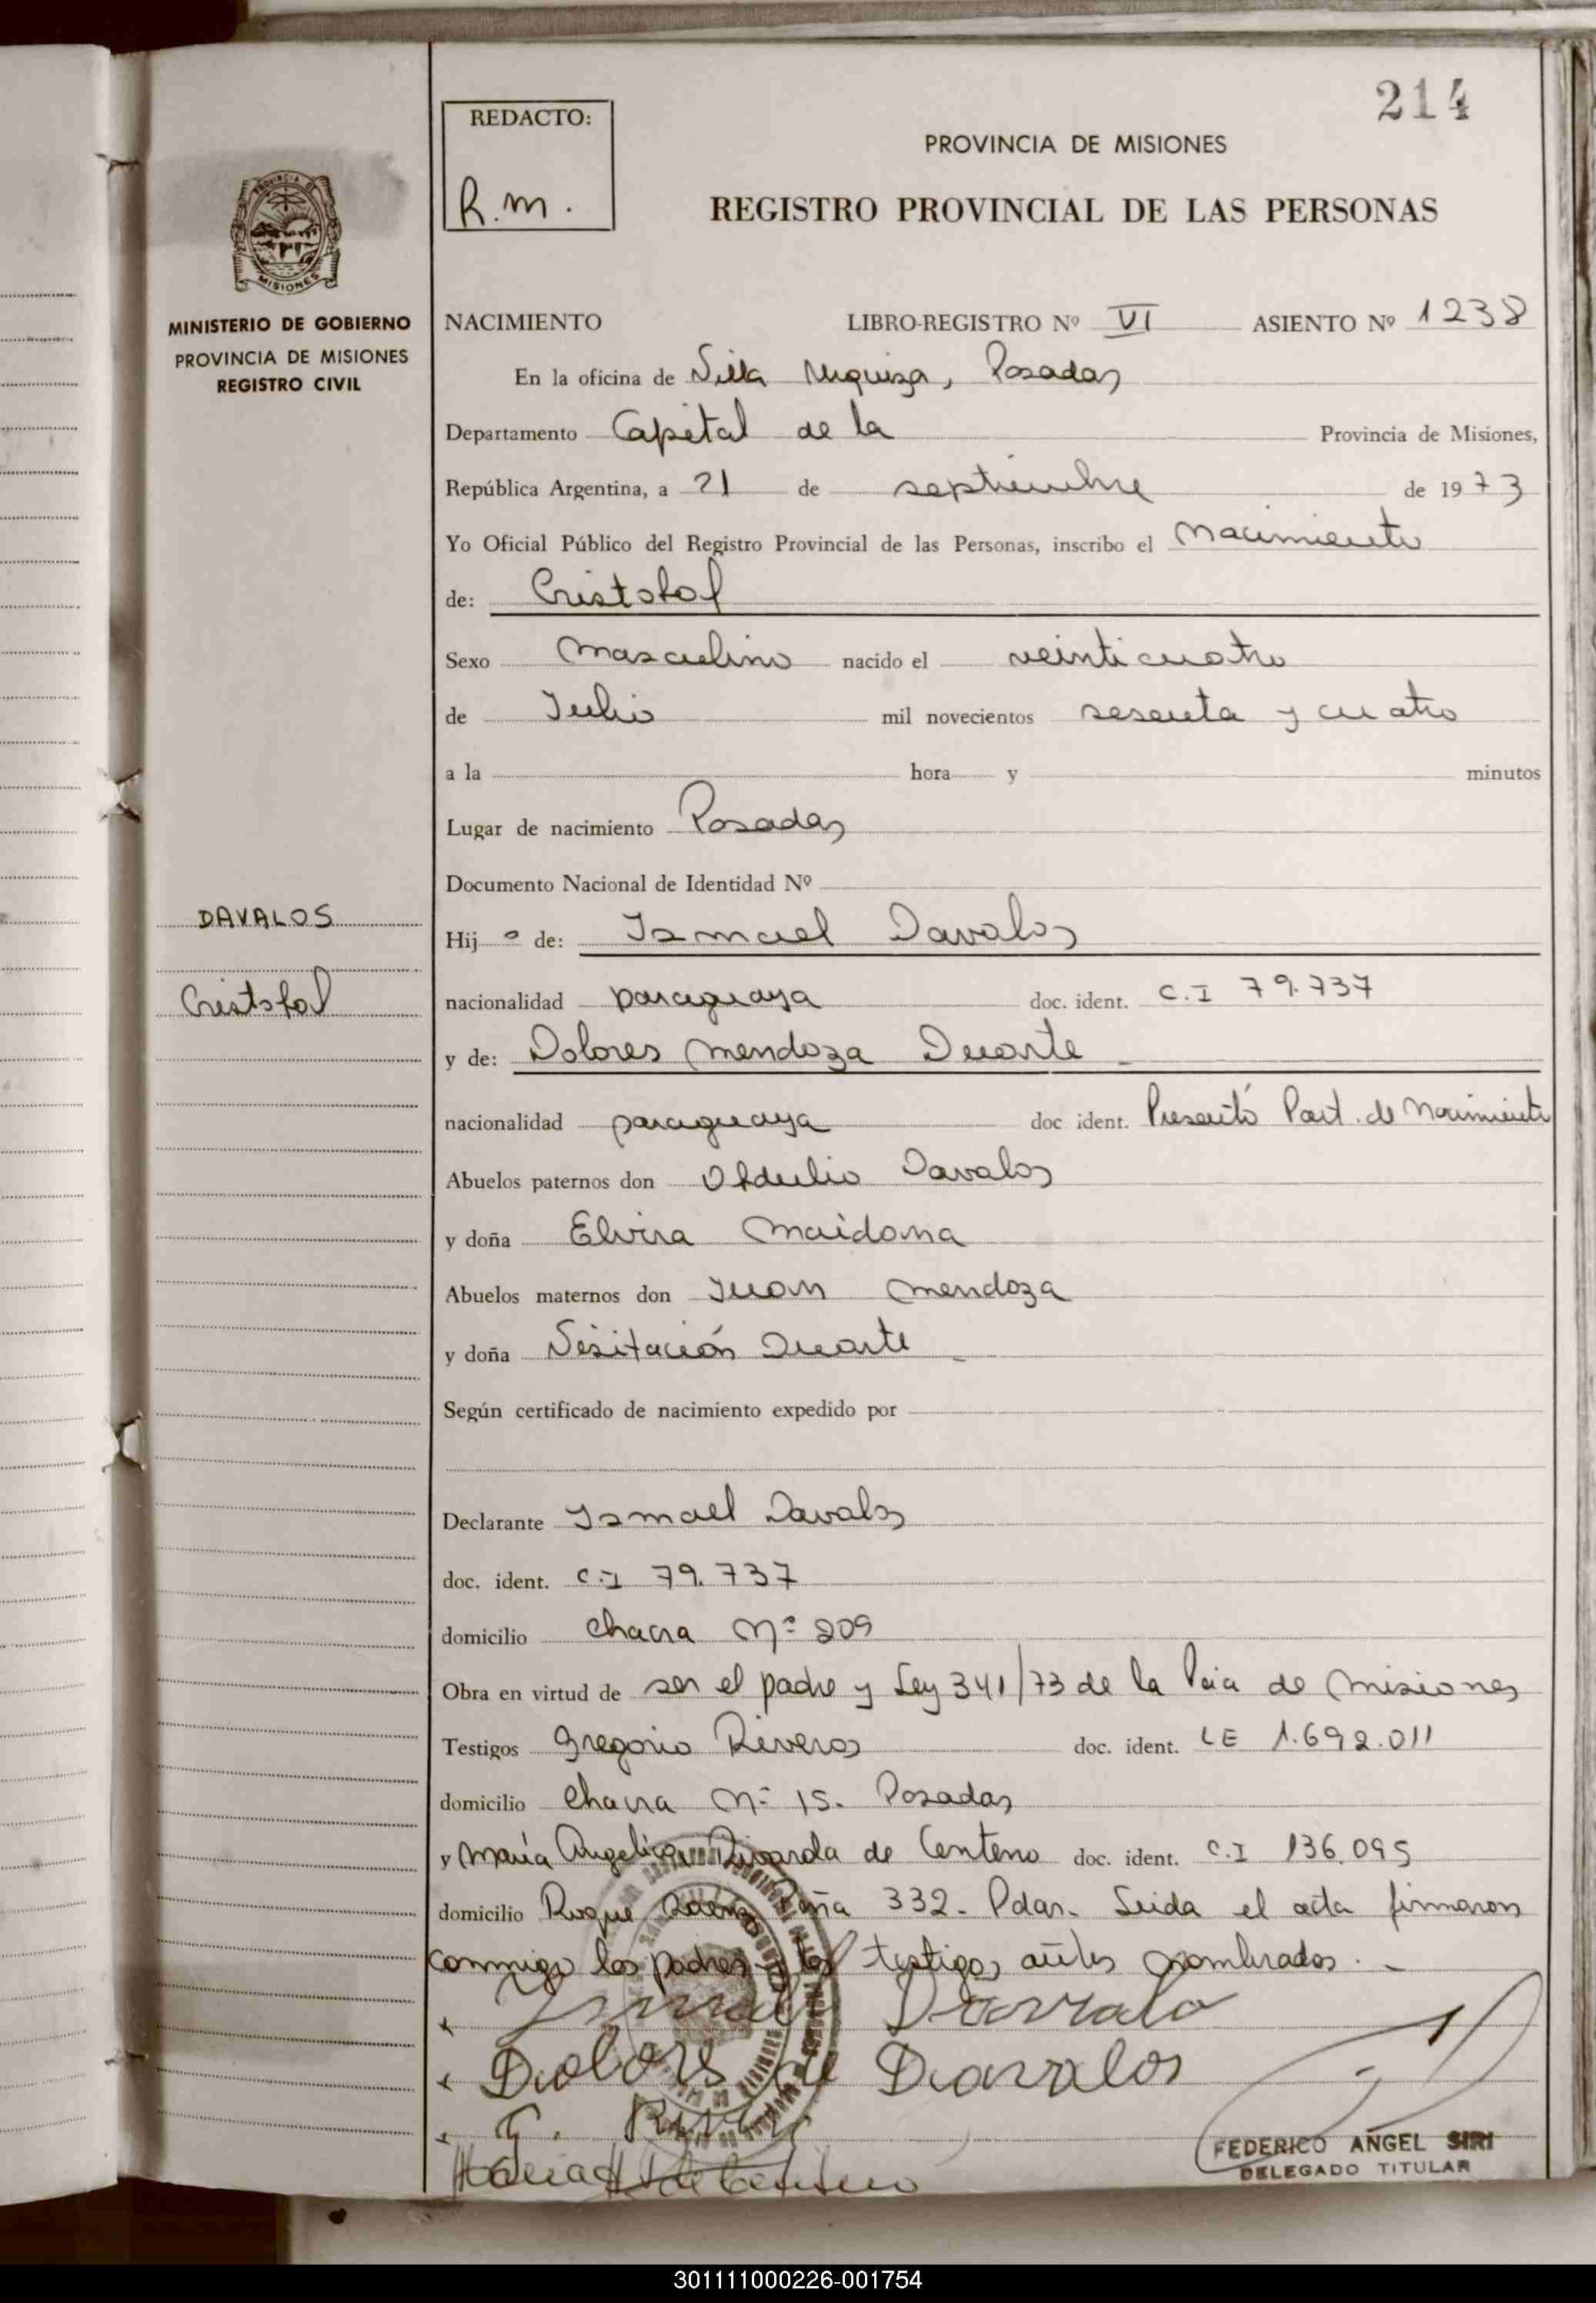 214
REDACTO:
R.m.
PROVINCIA DE MISIONES
REGISTRO PROVINCIAL DE LAS PERSONAS
PROVINCIA DE
MISIONES
MINISTERIO DE GOBIERNO
PROVINCIA DE MISIONES
REGISTRO CIVIL
NACIMIENTO LIBRO-REGISTRO Nº VI ASIENTO Nº 1238
En la oficina de Villa Urquiza, Posadas
Departamento Capital de la Provincia de Misiones,
República Argentina, a 21 de septiembre de 1973
Yo Oficial Público del Registro Provincial de las Personas, inscribo el Nacimiento
de: Cristobal
Sexo Masculino nacido el veinticuatro
de Julio mil novecientos sesenta y cuatro
a la hora y minutos
Lugar de nacimiento Posadas
Documento Nacional de Identidad Nº
DAVALOS
Cristobal
Hijo de: Ismael Davalos
nacionalidad paraguaya doc. ident. C.I 79.737
y de: Dolores Mendoza Duarte
nacionalidad paraguaya doc ident. Presentó Part. de Nacimiento
Abuelos paternos don Obdulio Davalos
y doña Elvira Maidana
Abuelos maternos don Juan Mendoza
y doña Visitación Duarte
Según certificado de nacimiento expedido por
Declarante Ismael Davalos
doc. ident. C.I 79.737
domicilio Chacra Nº 209
Obra en virtud de ser el padre y Ley 341/73 de la Pcia de Misiones
Testigos Gregorio Riveros doc. ident. LE 1.692.011
domicilio Chacra Nº 15. Posadas
y María Angelica de Centeno doc. ident. C.I 136.095
domicilio Roque Saenz Peña 332- Pdas. Leida el acta firmaron
conmigo los padres y los testigos antes nombrados.-
Ismael Davalo
Dolores de Davalos
G.
Maria de Centeno
FEDERICO ANGEL SIRI
DELEGADO TITULAR
301111000226-001754